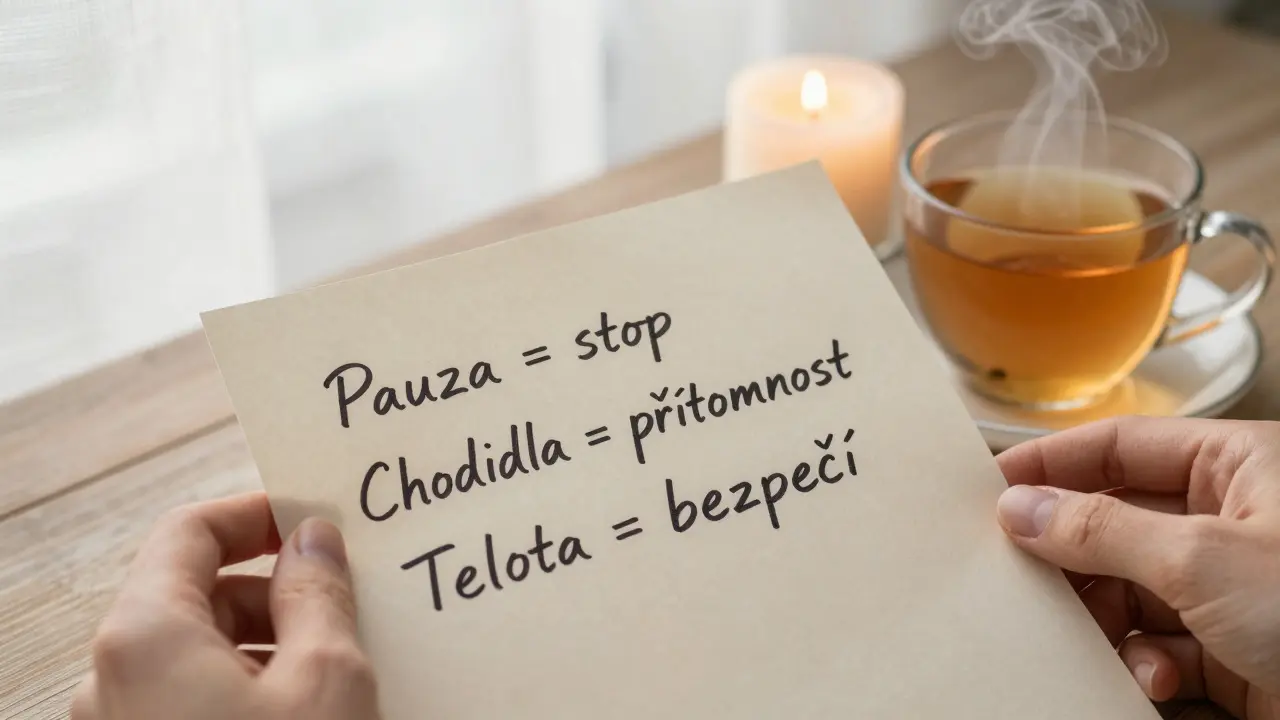 Pauza = stop
Chodidla = přítomnost
Telota = bezpečí